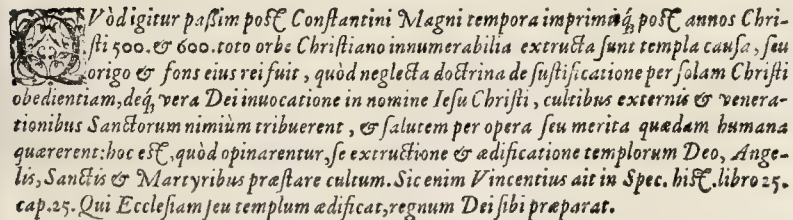 QVòd igitur paßim post Constantini Magni tempora imprimisq́; post annos Chri-
sti 500. & 600. toto orbe Christiano innumerabilia extructa sunt templa causa, seu
origo & fons eius rei fuit, quòd neglecta doctrina de iustificatione per solam Christi
obedientiam, deq́; vera Dei inuocatione in nomine Iesu Christi, cultibus externis & venera-
tionibus Sanctorum nimiùm tribuerent, & salutem per opera seu merita quædam humana
quærerent: hoc est, quòd opinarentur, se extructione & ædificatione templorum Deo, Ange-
lis, Sanctis & Martyribus præstare cultum. Sic enim Vincentius ait in Spec. hist. libro 25.
cap. 25. Qui Ecclesiam seu templum ædificat, regnum Dei sibi præparat.